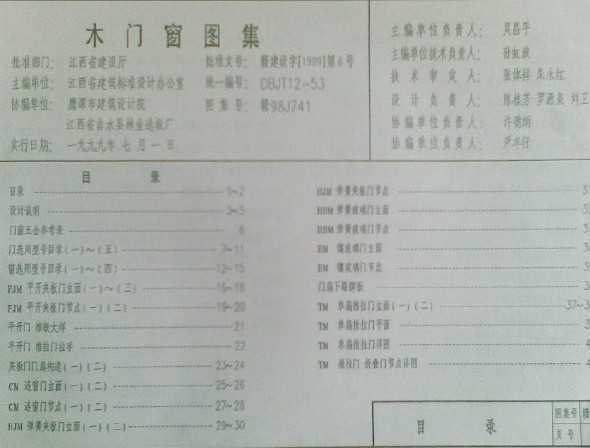 木门窗图集
批准部门: 江西省建设厅
主编单位: 江西省建筑标准设计办公室
协编单位: 鹰潭市建筑设计院
江西省吉水县林业造板厂
实行日期: 一九九九年 七月 一日
批准文号: 赣建设字[1999]第6号
统一编号: DBJT12-53
图集号: 赣98J741
主编单位负责人: 吴昌平
主编单位技术负责人:
技术审定人: 张体科 朱永红
设计负责人: 陈桂芳 罗源泉 刘卫
协编单位负责人: 许德炳
协编单位负责人: 尹冬仔
目 录
目录 1~2
设计说明 3~5
门窗五金参考表 6
门选用型号目录(一)~(五) 7~11
窗选用型号目录(一)~(四) 12~15
PJM 平开夹板门立面(一)~(三) 16~18
PJM 平开夹板门节点(一)(二) 19~20
平开门 推板大样 21
平开门 推拉门拉手 22
夹板门门扇构造(一)(二) 23~24
CM 连窗门立面(一)(二) 25~26
CM 连窗门节点(一)(二) 27~28
HJM 弹簧夹板门立面(一)(二) 29~30
HJM 弹簧夹板门节点
HBM 弹簧玻璃门立面
HBM 弹簧玻璃门节点
BM 镶玻璃门立面
BM 镶玻璃门节点
门扇下幕脚板
TM 单扇推拉门立面(一)(二) 37~
TM 单扇推拉门平面
TM 单扇推拉门详图
TM 推拉门 折叠门节点详图
目 录
图集号 赣
页号